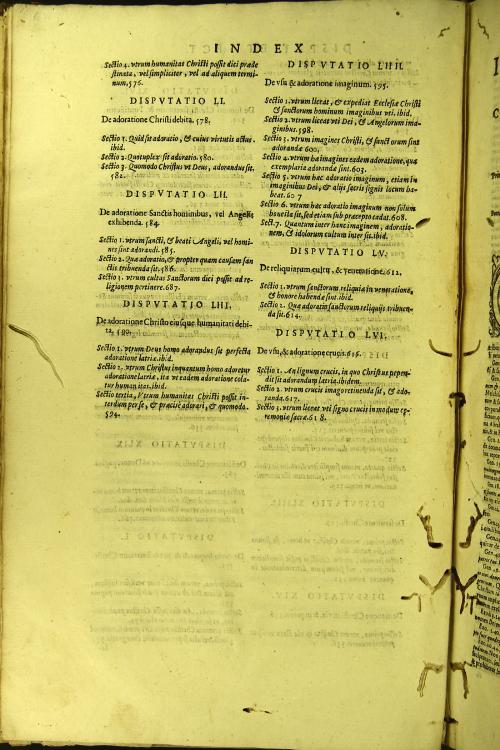 INDEX
Sectio 4. vtrum humanitas Christi possit dici præde
stinata, vel simpliciter, vel ad aliquem termi-
num. 576.
DISPVTATIO LI.
De adoratione Christi debita. 578.
Sectio 1. Quid sit adoratio, & cuius virtutis actus
ibid.
Sectio 2. Quotuplex sit adoratio. 580.
Sectio 3. Quomodo Christus vt Deus, adorandus sit.
582.
DISPVTATIO LII.
De adoratione Sanctis hominibus, vel Angelis
exhibenda. 584.
Sectio 1. vtrum sancti, & beati Angeli, vel homi-
nes sint adorandi. 585.
Sectio 2. Qua adoratio, & propter quam causam san
ctis tribuenda sit. 586.
Sectio 3. vtrum cultus Sanctorum dici possit ad re-
ligionem pertinere. 687.
DISPVTATIO LIII.
De adoratione Christo eiusque humanitati debi-
ta. 590.
Sectio 1. vtrum Deus homo adorandus sit perfecta
adoratione latriæ. ibid.
Sectio 2. vtrum Christus inquantum homo adoretur
adoratione latria, ita vt eadem adoratione cola-
tur humanitas. ibid.
Sectio tertia, Vtrum humanitas Christi possit in-
terdum per se, & præcise adorari, & quomodo.
594.
DISPVTATIO LIIII.
De vsu & adoratione imaginum. 595.
Sectio 1. vtrum liceat, & expediat Ecclesiæ Christi
& sanctorum hominum imaginibus vti. ibid.
Sectio 2. vtrum liceat vti Dei, & Angelorum ima-
ginibus. 598.
Sectio 3. vtrum imagines Christi, & sanctorum sint
adorandæ 600.
Sectio 4. vtrum hæ imagines eadem adoratione, qua
exemplaria adoranda sint. 603.
Sectio 5. vtrum hæc adoratio imaginum, etiam in
imaginibus Dei, & alijs sacris signis locum ha-
beat. 607
Sectio 6. vtrum hæc adoratio imaginum non solum
honesta sit, sed etiam sub præcepto cadat. 608.
Sect. 7. Quantum inter hanc imaginem, adoratio-
nem, & idolorum cultum inter sit. ibid.
DISPVTATIO LV.
De reliquiarum cultu, & veneratione. 612.
Sectio 1. vtrum sanctorum reliquiæ in veneratione,
& honore habenda sint. ibid.
Sectio 2. Qua adoratio sanctorum reliquijs tribuen-
da sit. 614.
DISPVTATIO LVI.
De vsu, & adoratione crucis. 616.
Sectio 1. An lignum crucis, in quo Christus pepen-
dit sit adorandum latria. ibidem.
Sectio 2. vtrum crucis imago retinenda sit, & ado-
randa. 617.
Sectio 3. vtrum liceat vti signo crucis in modum ce-
remoniæ sacræ. 618.